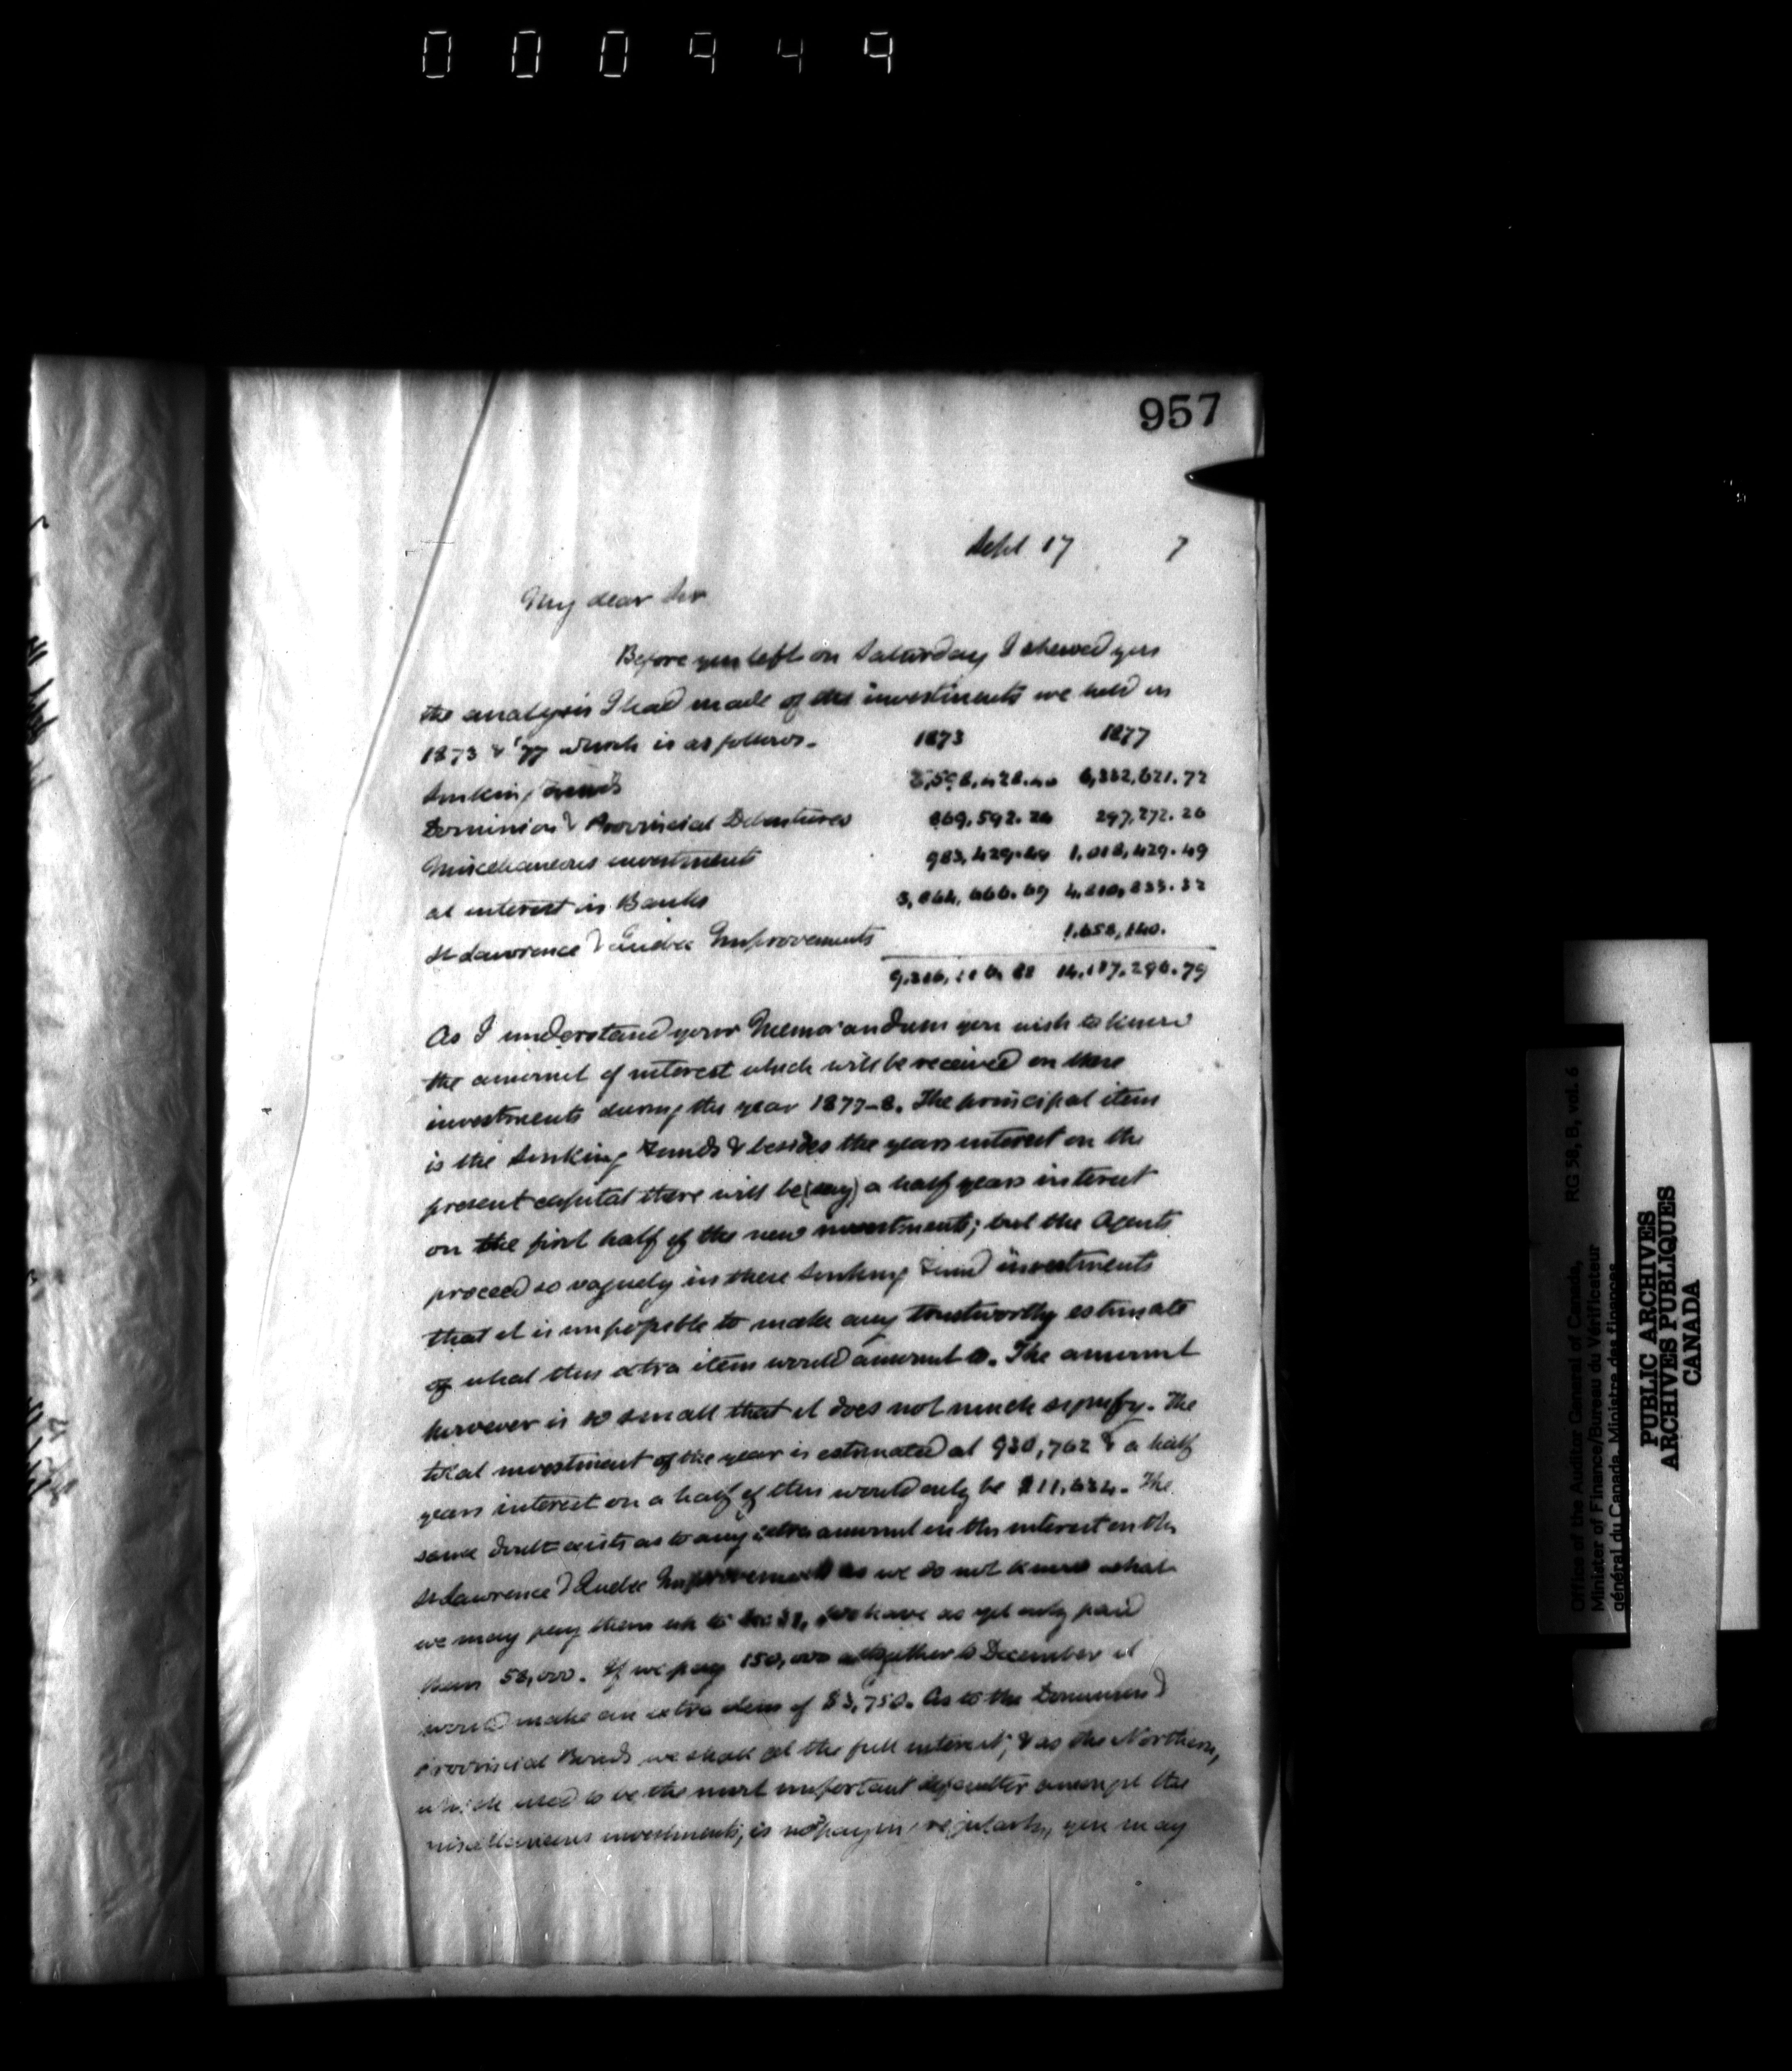 000949
957
Sept 17 7
My dear Sir
Before you left on Saturday I shewed you
the analysis I had made of the investments we held in
1873 & '77 which is as follows. 1873 1877
Sinking Funds
Dominion & Provincial Debentures 869,592.26 297,272.26
Miscellaneous investments 983,429.49 1,018,429.49
at interest in Banks 4,810,833.32
St Lawrence & Quebec Improvements 1,658,140.
14,117,296.79
As I understand your Memorandum you wish to know
the amount of interest which will be received on these
investments during the year 1877-8. The principal item
is the Sinking Funds & besides the years interest on the
present capital there will be (say) a half years interest
on the first half of the new investments; but the Agents
proceed so vaguely in these Sinking Fund investments
that it is impossible to make any trustworthy estimate
of what this extra item would amount to. The amount
however is so small that it does not much signify. The
total investment of the year is estimated at 930,762 & a half
years interest on a half of this would only be $11,634. The
same doubt exists as to any extra amount in the interest on the
St Lawrence & Quebec Improvements as we do not know what
we may pay them up to Dec 31, we have as yet only paid
them 58,000. If we pay 150,000 altogether to December it
would make an extra item of $3,750. As to the Dominion &
Provincial Bonds we shall get the full interest; & as the Northern,
which used to be the most important defaulter amongst the
miscellaneous investments, is now paying regularly, you may
Office of the Auditor General of Canada, RG 58, B, vol. 6
Minister of Finance/Bureau du Vérificateur
général du Canada, Ministre des finances
PUBLIC ARCHIVES
ARCHIVES PUBLIQUES
CANADA